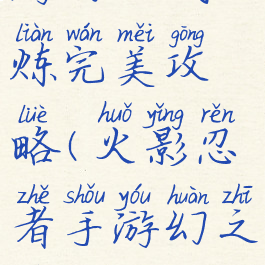 liàn wán měi gōng
炼完美攻
lüè huǒ yǐng rěn
略(火影忍
zhě shǒu yóu huàn zhī
者手游幻之